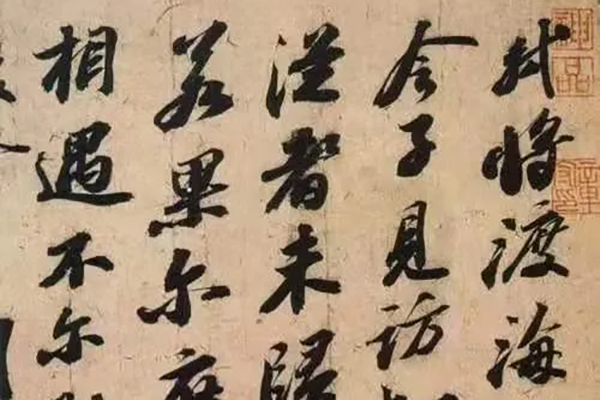 神品
軾將渡海
令子見訪
從者未歸
若果尔庶
相遇不尔